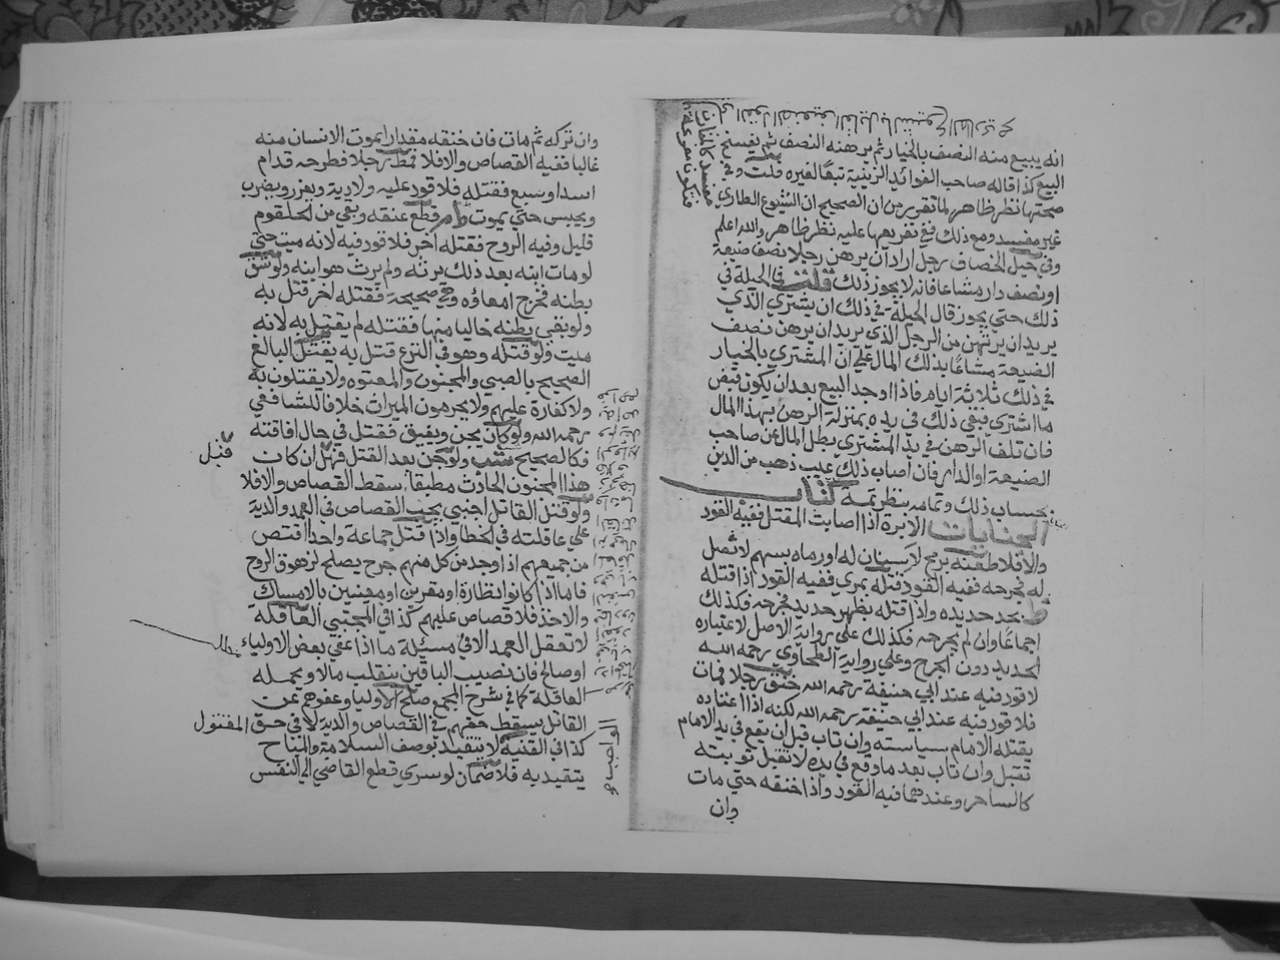 انه يبيع منه النصف بالخيار ثم يرهنه النصف ثم يفسخ
البيع كذا قاله صاحب الفوائد الزينية تبعا لغيره قلت وفي
صحتها نظر ظاهر لما تقرر من ان الصحيح ان الشيوع الطاري
غير مفسد ومع ذلك ففي تفريعها عليه نظر ظاهر والله اعلم
وفي حيل الخصاف رجل اراد ان يرهن رجلا نصف ضيعة
او نصف دار مشاعا فانه لا يجوز ذلك قلت فالحيلة في
ذلك حتي يجوز قال الحيلة في ذلك ان يشتري الذي
يريد ان يرتهن من الرجل الذي يريد ان يرهن نصف
الضيعة مشاعا بذلك المال علي ان المشتري بالخيار
في ذلك ثلاثة ايام فاذا اوجد البيع بعد ان يكون قبض
ما اشتري فبقي ذلك في يده بمنزلة الرهن بهذا المال
فان تلف الرهن في يد المشتري بطل المال عن صاحب
الضيعة او الدار فان اصاب ذلك عيب ذهب من الدين
بحساب ذلك وتمامه ينظر ثمه كتاب
الجنايات الابرة اذا اصابت المقتل ففيه القود
والا فلا طعنه برمح لا سنان له او رماه بسهم لا نصل
له فجرحه ففيه القود قتله بمري ففيه القود اذا قتله
بحد حديده واذا قتله بظهر حديد فجرحه فكذلك
اجماعا وان لم يجرحه فكذلك علي رواية الاصل لاعتباره
الحديد دون الجرح وعلي رواية الطحاوي رحمه الله
لا قود فيه عند ابي حنيفة رحمه الله خنق رجلا فمات
فلا قود فيه عند ابي حنيفة رحمه الله لكنه اذا اعتاده
يقتله الامام سياسته وان تاب قبل ان يقع في يد الامام
تقبل وان تاب بعد ما وقع في يده لا تقبل توبته
كالساحر وعندهما فيه القود واذا خنقه حتي مات
وان
وان تركه ثم مات فان خنقه مقدار ايموت الانسان منه
غالبا ففيه القصاص والا فلا قمط رجلا فطرحه قدام
اسد او سبع فقتله فلا قود عليه ولا دية ويعزر ويضرب
ويحبس حتي يموت قطع عنقه وبقي من الحلقوم
قليل وفيه الروح فقتله آخر فلا قود فيه لانه ميت حتي
لو مات ابنه بعد ذلك يرثه ولم يرث هو ابنه ولو شق
بطنه فخرج امعاؤه وهي صحيحة فقتله اخر قتل به
ولو بقي بطنه خاليا منها فقتله لم يقتل به لانه
ميت ولو قتله وهو في النزع قتل به يقتل البالغ
الصحيح بالصبي والمجنون والمعتوه ولا يقتلون به
ولا كفارة عليهم ولا يحرمون الميراث خلافا للشافعي
رحمه الله ولو كان يجن ويفيق فقتل في حال افاقته
فكالصحيح ولو جن بعد القتل قتل ان كان
هذا المجنون الحادث مطبقا سقط القصاص والا فلا
ولو قتل القاتل اجنبي يجب القصاص في العمد والدية
علي عاقلته في الخطا واذا قتل جماعة واحدا اقتص
من جميعهم اذا وجد من كل منهم جرح يصلح لزهوق الروح
فاما اذا كانوا نظارة او مغرين او معينين بالامساك
والاخذ فلا قصاص عليهم كذا في المجتبي العاقلة
لا تعقل العمد الا في مسئلة ما اذا عفي بعض الاولياء
او صالح فان نصيب الباقين ينقلب مالا ويحمله
العاقلة كما في شرح المجمع صلح الاوليا وعفوهم عن
القاتل يسقط حقهم في القصاص والدية لا في حق المقتول
كذا في القنية لا يتقيد بوصف السلامة والمباح
يتقيد به فلا ضمان لو سري قطع القاضي الي النفس